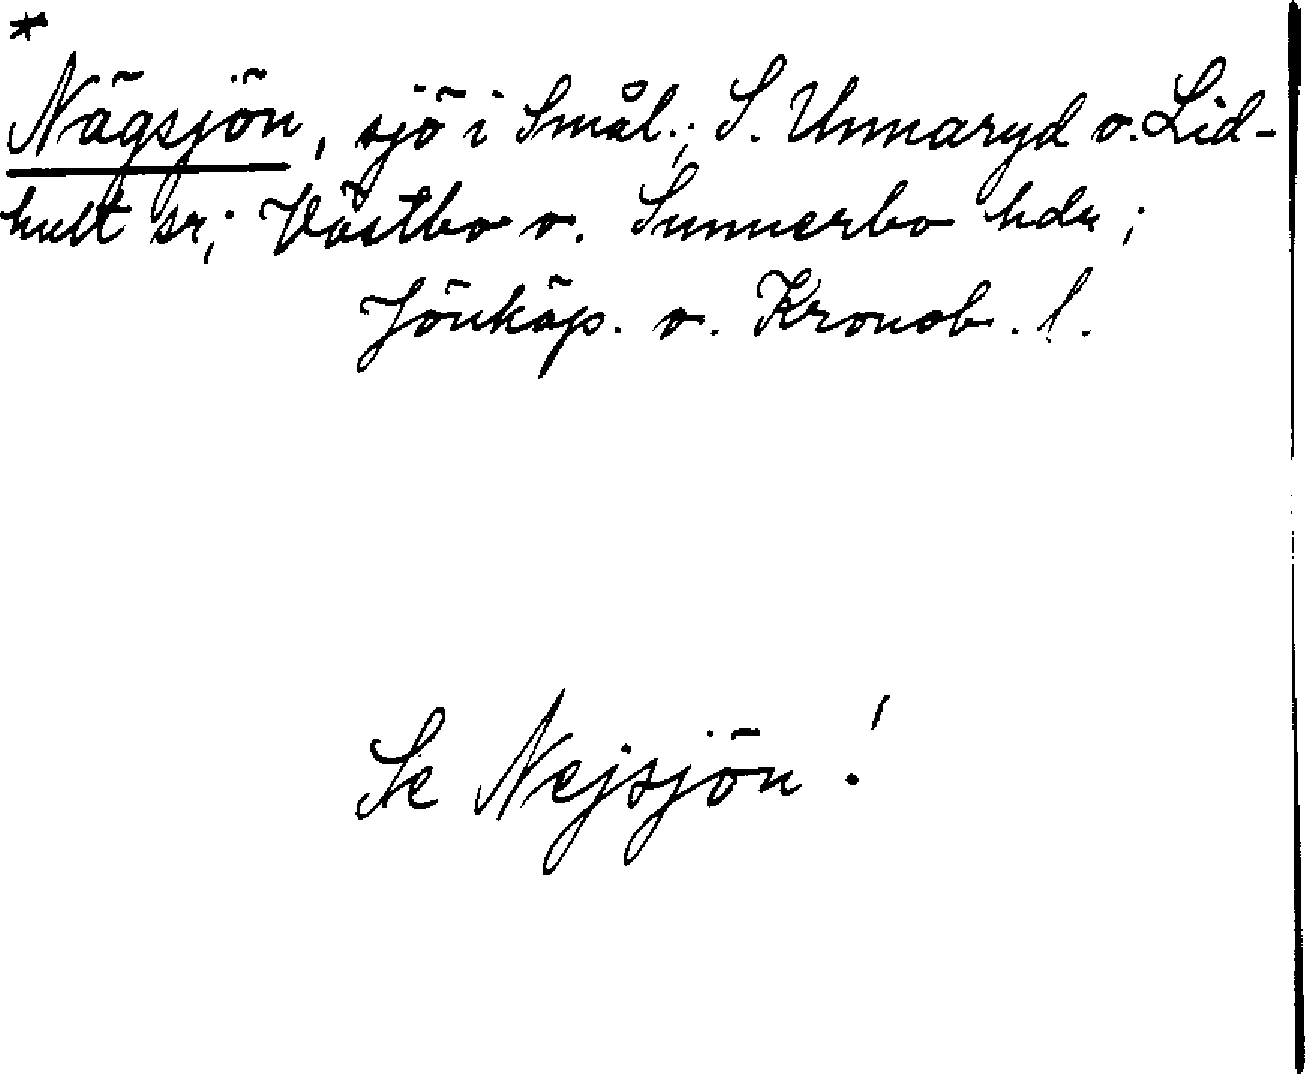 *
Nägsjön, sjö i Smål.; S. Unnaryd o. Lid-
hult sr; Västbo o. Sunnerbo hdr;
Jönköp. o. Kronob. l.
Se Nejsjön!